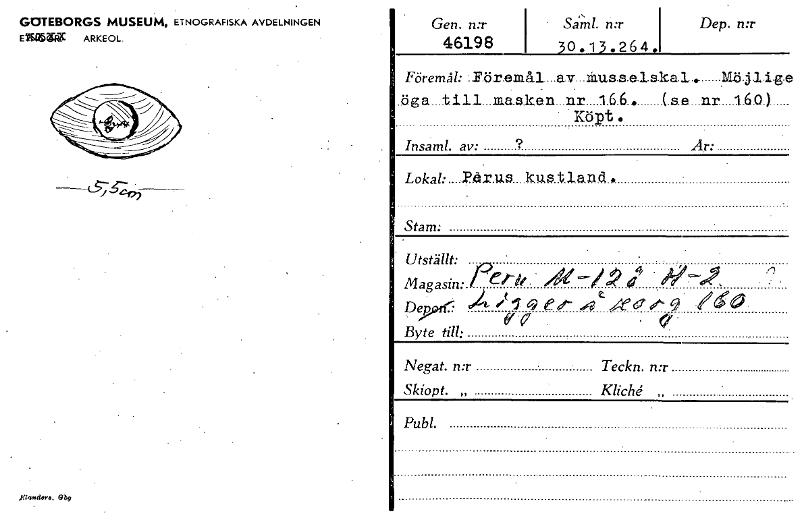 GÖTEBORGS MUSEUM, ETNOGRAFISKA AVDELNINGEN
ARKEOL.
5,5cm
Elanders, Gbg
Gen. n:r
46198
Saml. n:r
30.13.264.
Dep. n:r
Föremål: Föremål av musselskal. Möjlige
öga till masken nr 166. (se nr 160)
Köpt.
Insaml. av: ? År:
Lokal: Perus kustland.
Stam:
Utställt:
Magasin: Peru M-12å H-2 ?
Depon.: Ligger å korg 160
Byte till:
Negat. n:r Teckn. n:r
Skiopt. „ Kliché „
Publ.